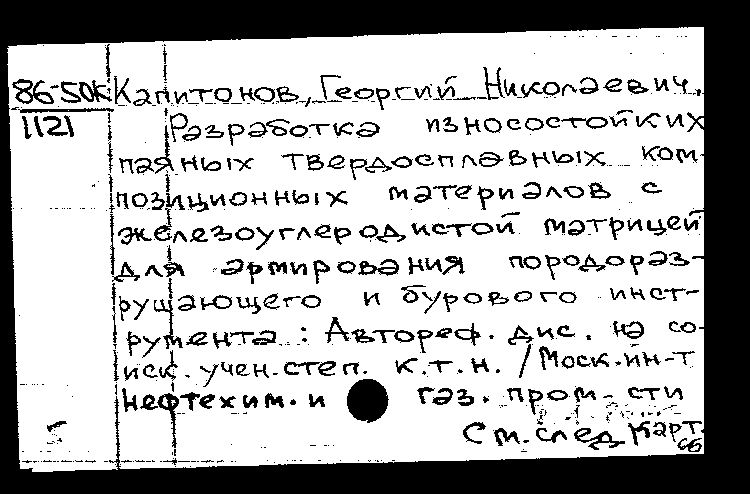 86-50К Капитонов, Георгий Николаевич.
1121 Разработка износостойких
паяных твердосплавных ком-
позиционных материалов с
железоуглеродистой матрицей
для армирования породораз-
рушающего и бурового инст-
румента : Автореф. дис. на со-
иск. учен. степ. к.т.н. / Моск. ин-т
нефтехим. и газ. пром-сти
См. след. карт.